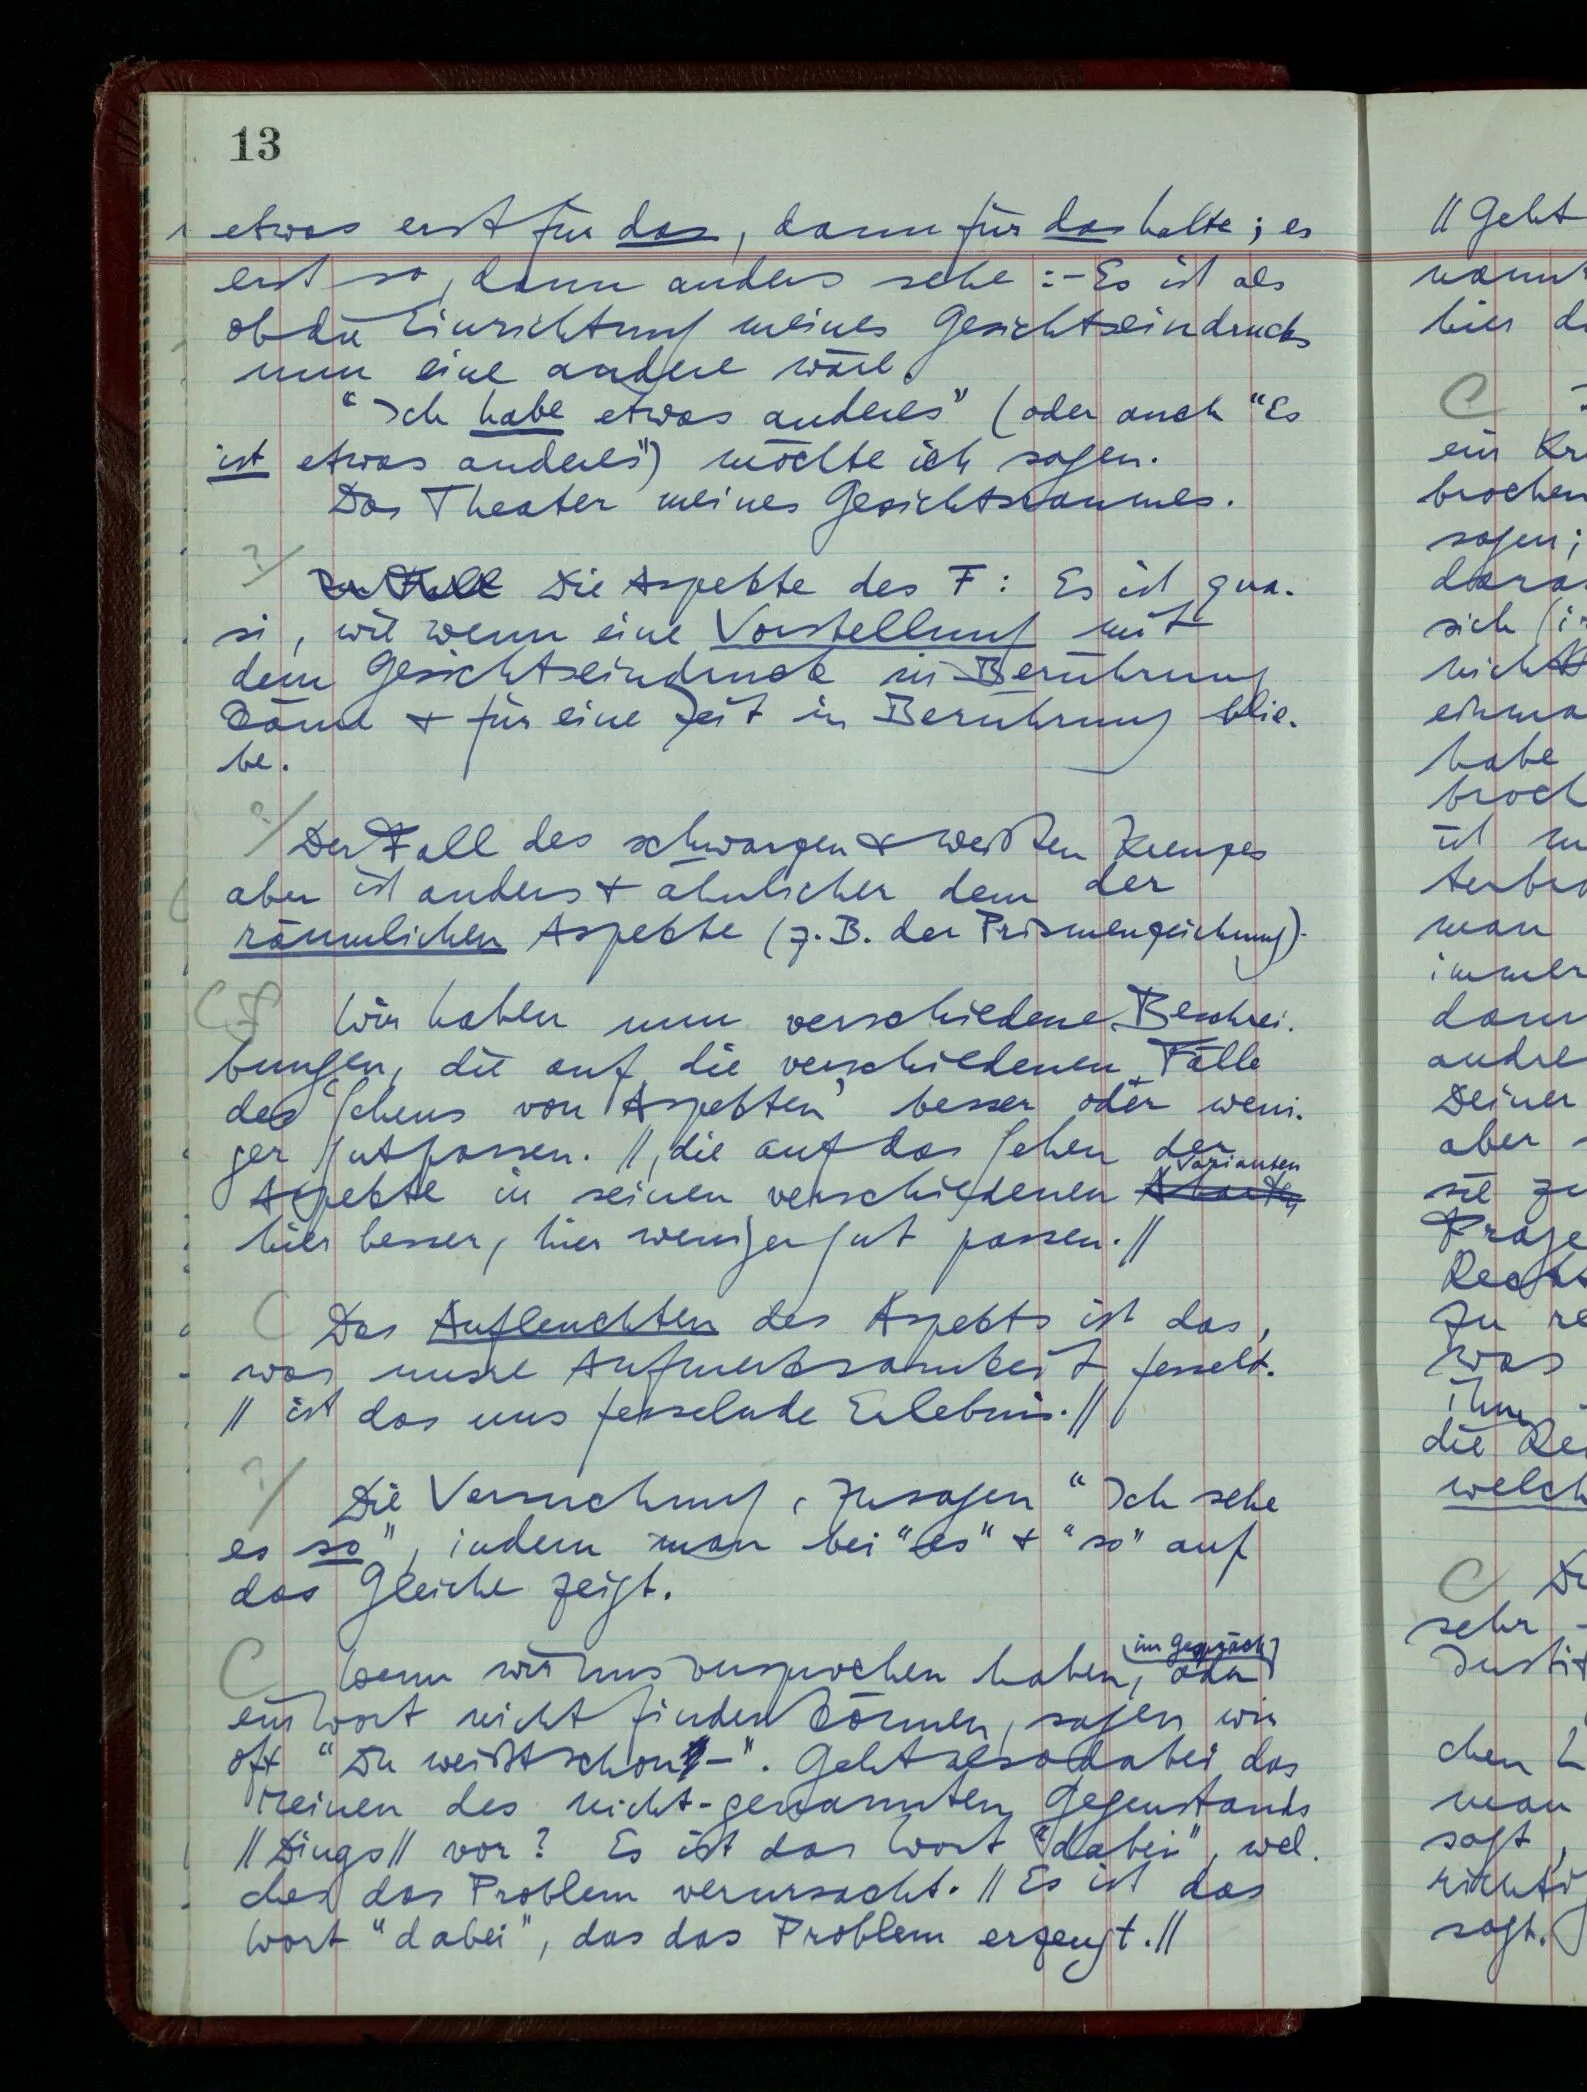 13
etwas erst für das, dann für das halte; es
erst so, dann anders sehe :– Es ist als
ob die Einrichtung meines Gesichtseindrucks
nun eine andere wäre.
"Ich habe etwas anderes" (oder auch "Es
ist etwas anderes") möchte ich sagen.
Das Theater meines Gesichtsraumes.
?/
Der Fall Die Aspekte des F: Es ist qua-
si, wie wenn eine Vorstellung mit
dem Gesichtseindruck in Berührung
käme & für eine Zeit in Berührung blie-
be.
?/
Der Fall des schwarzen & weißen Kreuzes
aber ist anders & ähnlicher dem der
räumlichen Aspekte (z.B. der Prismenzeichnung).
C
Wir haben nun verschiedene Beschrei-
bungen, die auf die verschiedenen Fälle
des 'Sehens von Aspekten' besser oder weni-
ger gut passen. //, die auf das Sehen der
Varianten
Aspekte in seinen verschiedenen
hier besser, hier weniger gut passen.//
C
Das Aufleuchten des Aspekts ist das,
was unsre Aufmerksamkeit fesselt.
// ist das uns fesselnde Erlebnis.//
?/
Die Versuchung, zu sagen "Ich sehe
es so", indem man bei "es" & "so" auf
das Gleiche zeigt.
C
im Gespräch
Wenn wir uns versprochen haben, oder
ein Wort nicht finden können, sagen wir
oft "Du weißt schon –". Geht also dabei das
Meinen des nicht-genannten Gegenstands
//Dings// vor? Es ist das Wort "dabei", wel-
ches das Problem verursacht. // Es ist das
Wort "dabei", das das Problem erzeugt.//
// Geht
hier
C
ein
brochen
sagen;
sich
einmal
habe
ist
man
immer
dann
andre
Deiner
aber
sie
Frage
was
Ihm
die
C
sehr
man
sagt,
sagt.